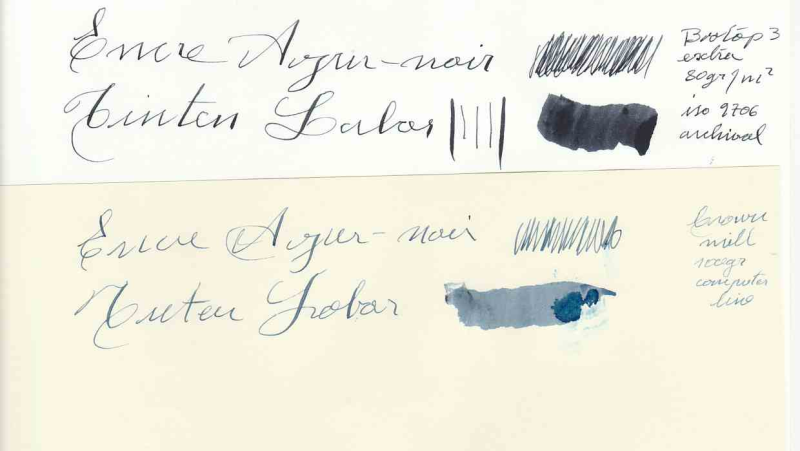 Encre Azur-noir
Tinten Labor
Biotop 3
extra
80gr/m²
iso 9706
archival
Encre Azur-noir
Tinten Labor
Crown
mill
100gr
computer
line